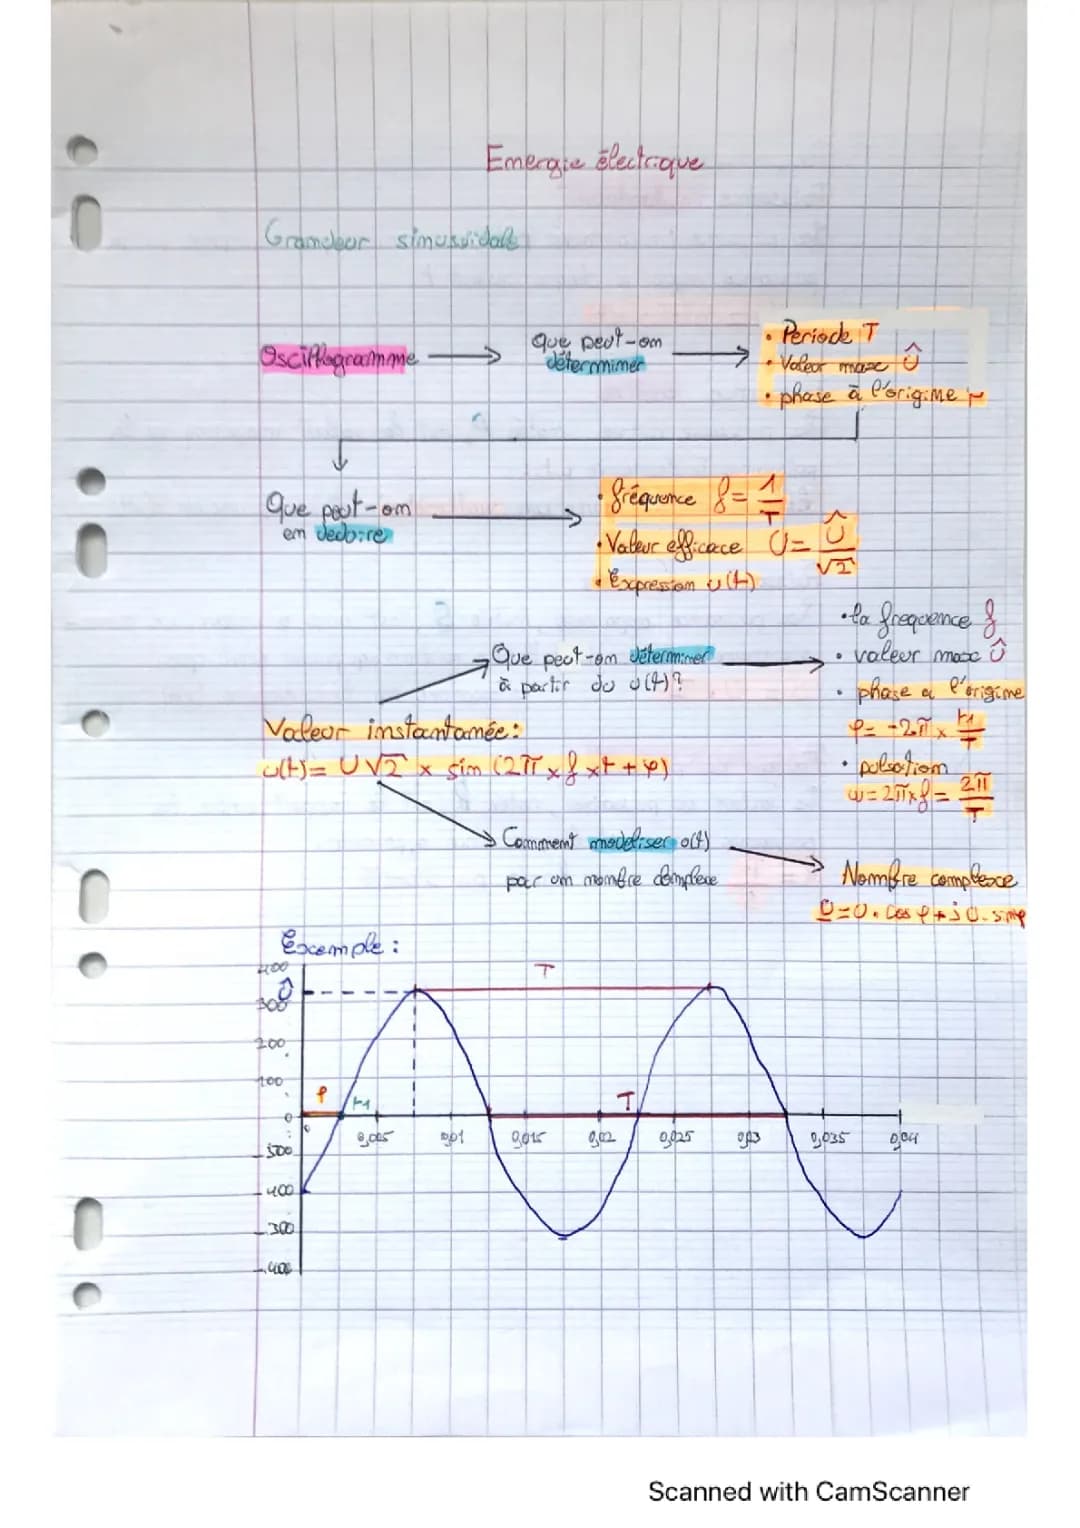 Energie électrique
Grandeur sinusoïdale
Oscillogramme
Que peut-on
déterminer
• Période T
• Valeur max Û
• phase à l'origine φ
Que peut-on
en déduire
• fréquence f = 1/T
• Valeur efficace U = Û/√2
• Expression u(t)
Que peut-on déterminer
à partir du u(t)?
• la frequence f
• valeur max Û
• phase a l'origine
φ = -2π × t1/T
• pulsation
ω = 2π×f = 2π/T
Valeur instantanée:
u(t) = U√2 × sin (2π × f × t + φ)
Comment modéliser u(t)
par un nombre complexe
Nombre complexe
U = U . cos φ + j U . sin φ
Exemple :
400
Û
300
200
100
0
-300
-400
T
φ
t1
T
0
0,005
0,01
0,015
0,02
0,025
0,03
0,035
0,04
Scanned with CamScanner